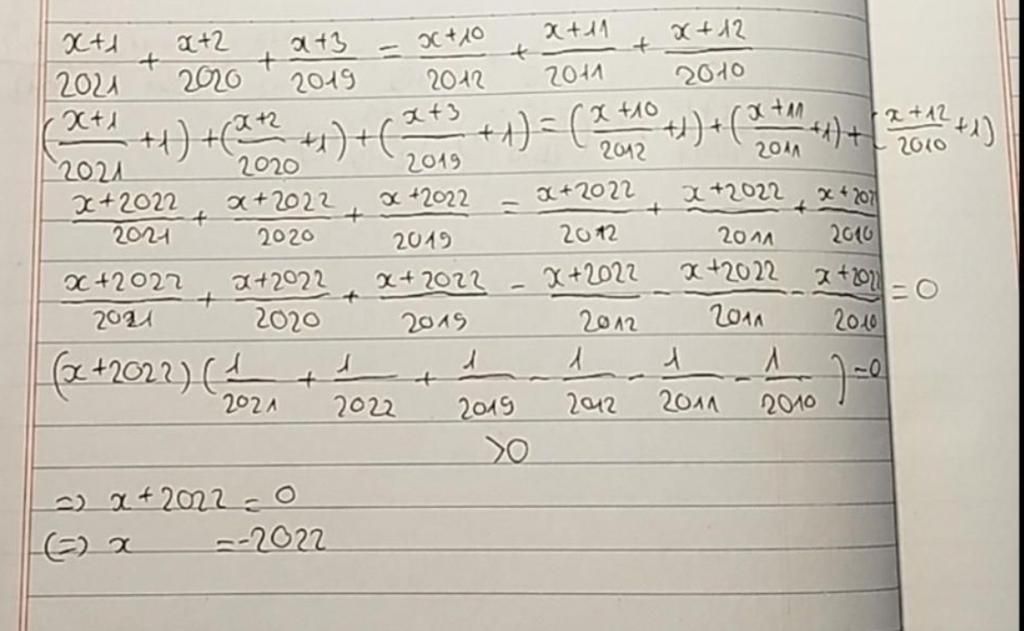 x+1/2021 + x+2/2020 + x+3/2019 = x+10/2012 + x+11/2011 + x+12/2010
(x+1/2021 +1) + (x+2/2020 +1) + (x+3/2019 +1) = (x+10/2012 +1) + (x+11/2011 +1) + (x+12/2010 +1)
x+2022/2021 + x+2022/2020 + x+2022/2019 = x+2022/2012 + x+2022/2011 + x+2022/2010
x+2022/2021 + x+2022/2020 + x+2022/2019 - x+2022/2012 - x+2022/2011 - x+2022/2010 = 0
(x+2022) (1/2021 + 1/2022 + 1/2019 - 1/2012 - 1/2011 - 1/2010) = 0
>0
=> x+2022 = 0
(=) x = -2022